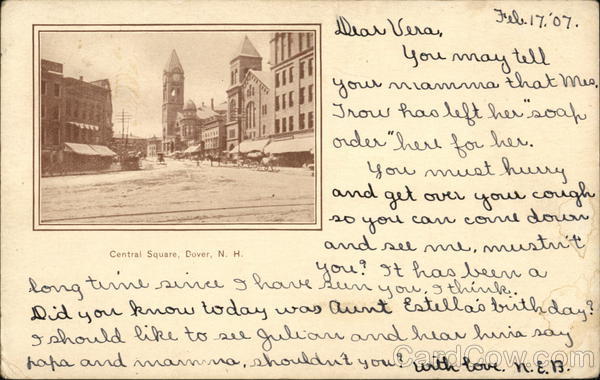 Feb. 17,'07.
Dear Vera,
You may tell
your mamma that Mrs.
Trow has left her "soap
order" here for her.
You must hurry
and get over your cough
so you can come down
and see me, mustn't
you? It has been a
long time since I have seen you, I think.
Did you know today was Aunt Estella's birthday?
I should like to see Julian and hear him say
papa and mamma, shouldn't you?
With love. N.E.B.
Central Square, Dover, N. H.
CardCow.com